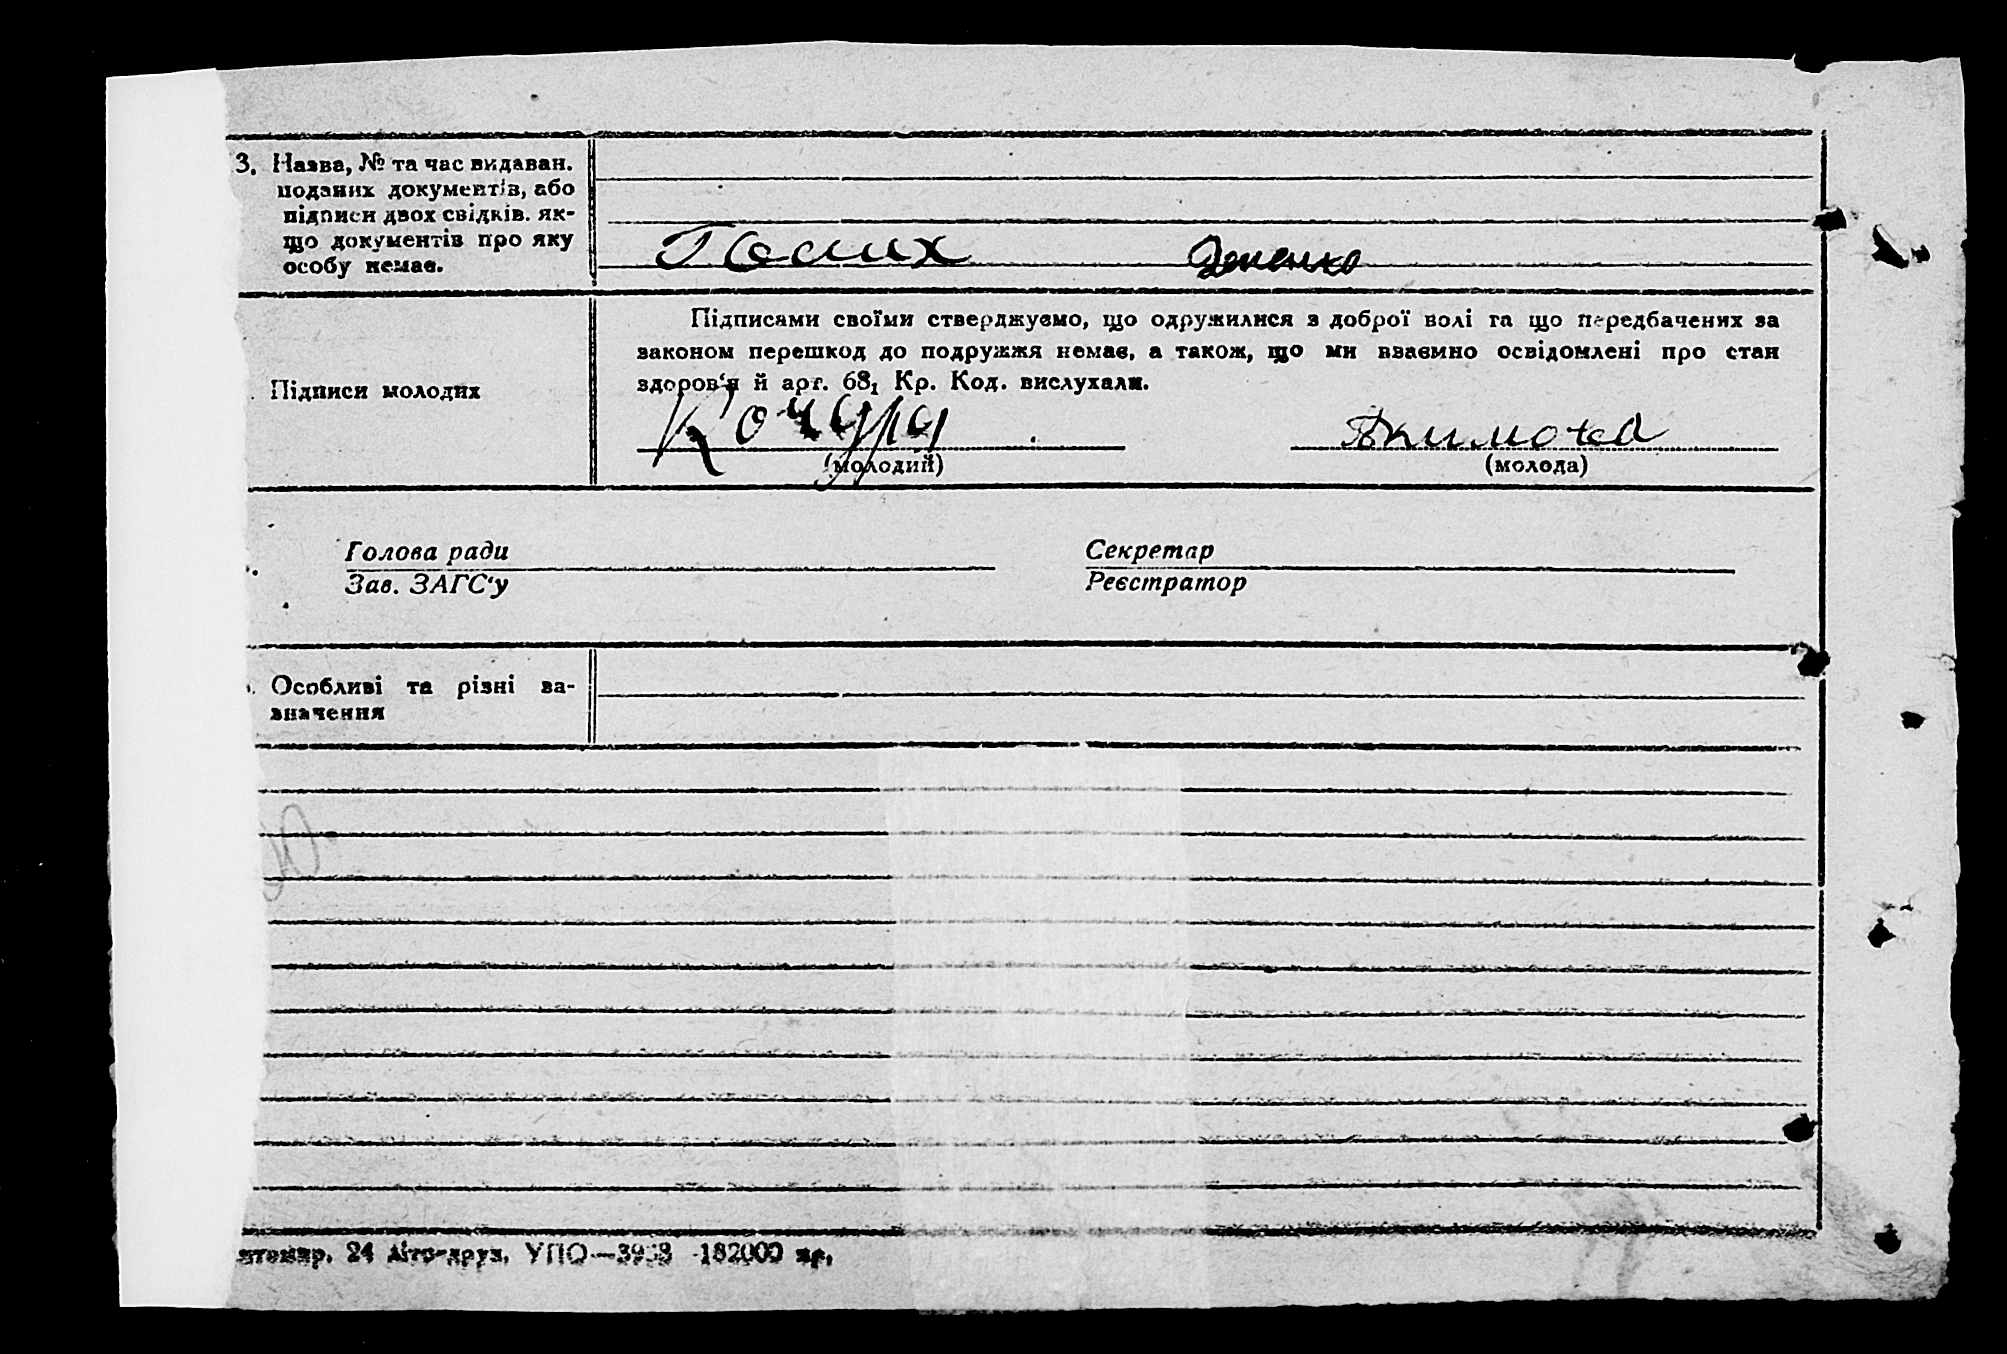 3. Назва, № та час видаван.
поданих документів, або
підписи двох свідків. як-
що документів про яку
особу немає.
Підписами своїми стверджуємо, що одружилися з доброї волі та що передбачених за
законом перешкод до подружжя немає, а також, що ми взаємно освідомлені про стан
здоров‘я й арт. 68₁ Кр. Код. вислухали.
Підписи молодих
Кочура
Якимова
(молодий)
(молода)
Голова ради
Секретар
Зав. ЗАГС‘у
Реєстратор
Особливі та різні за-
значення
24 літо-друк. УПО— 182000 пр.